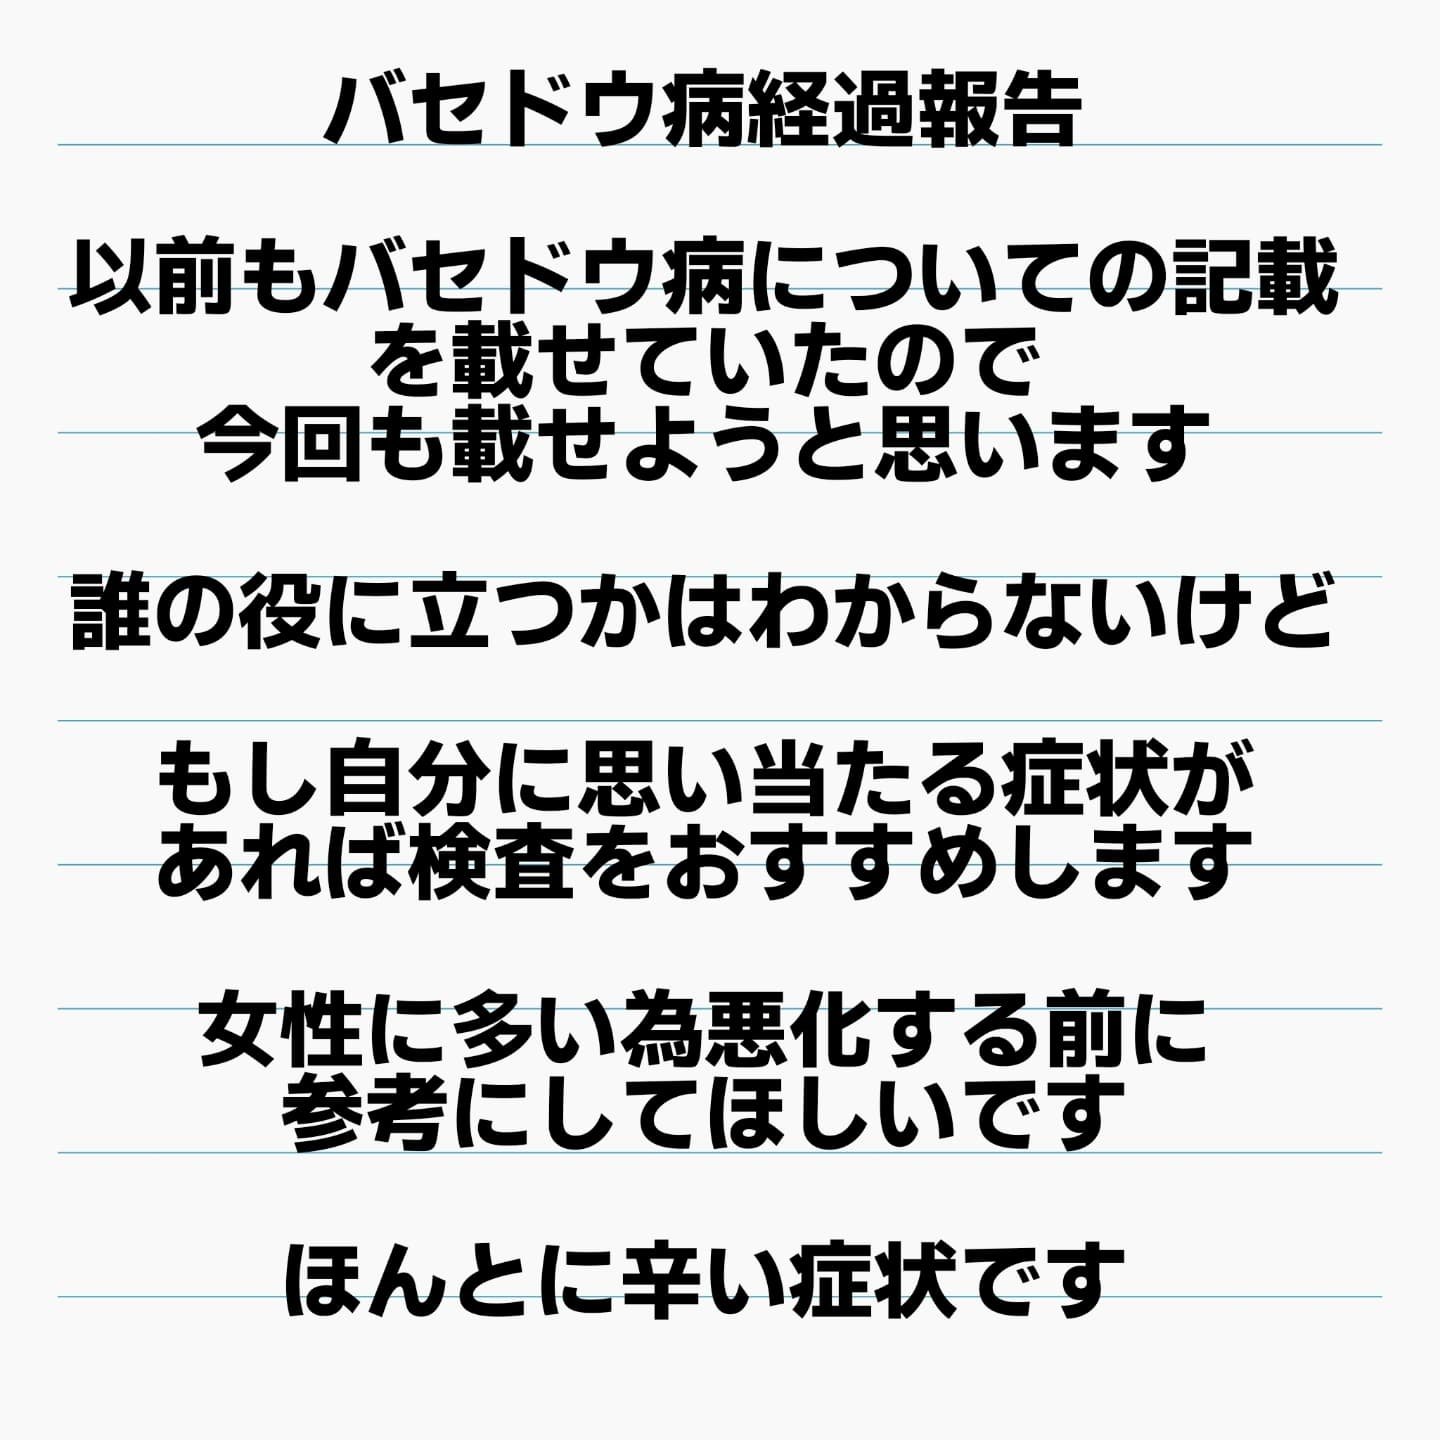 バセドウ病経過報告
以前もバセドウ病についての記載
を載せていたので
今回も載せようと思います
誰の役に立つかはわからないけど
もし自分に思い当たる症状が
あれば検査をおすすめします
女性に多い為悪化する前に
参考にしてほしいです
ほんとに辛い症状です